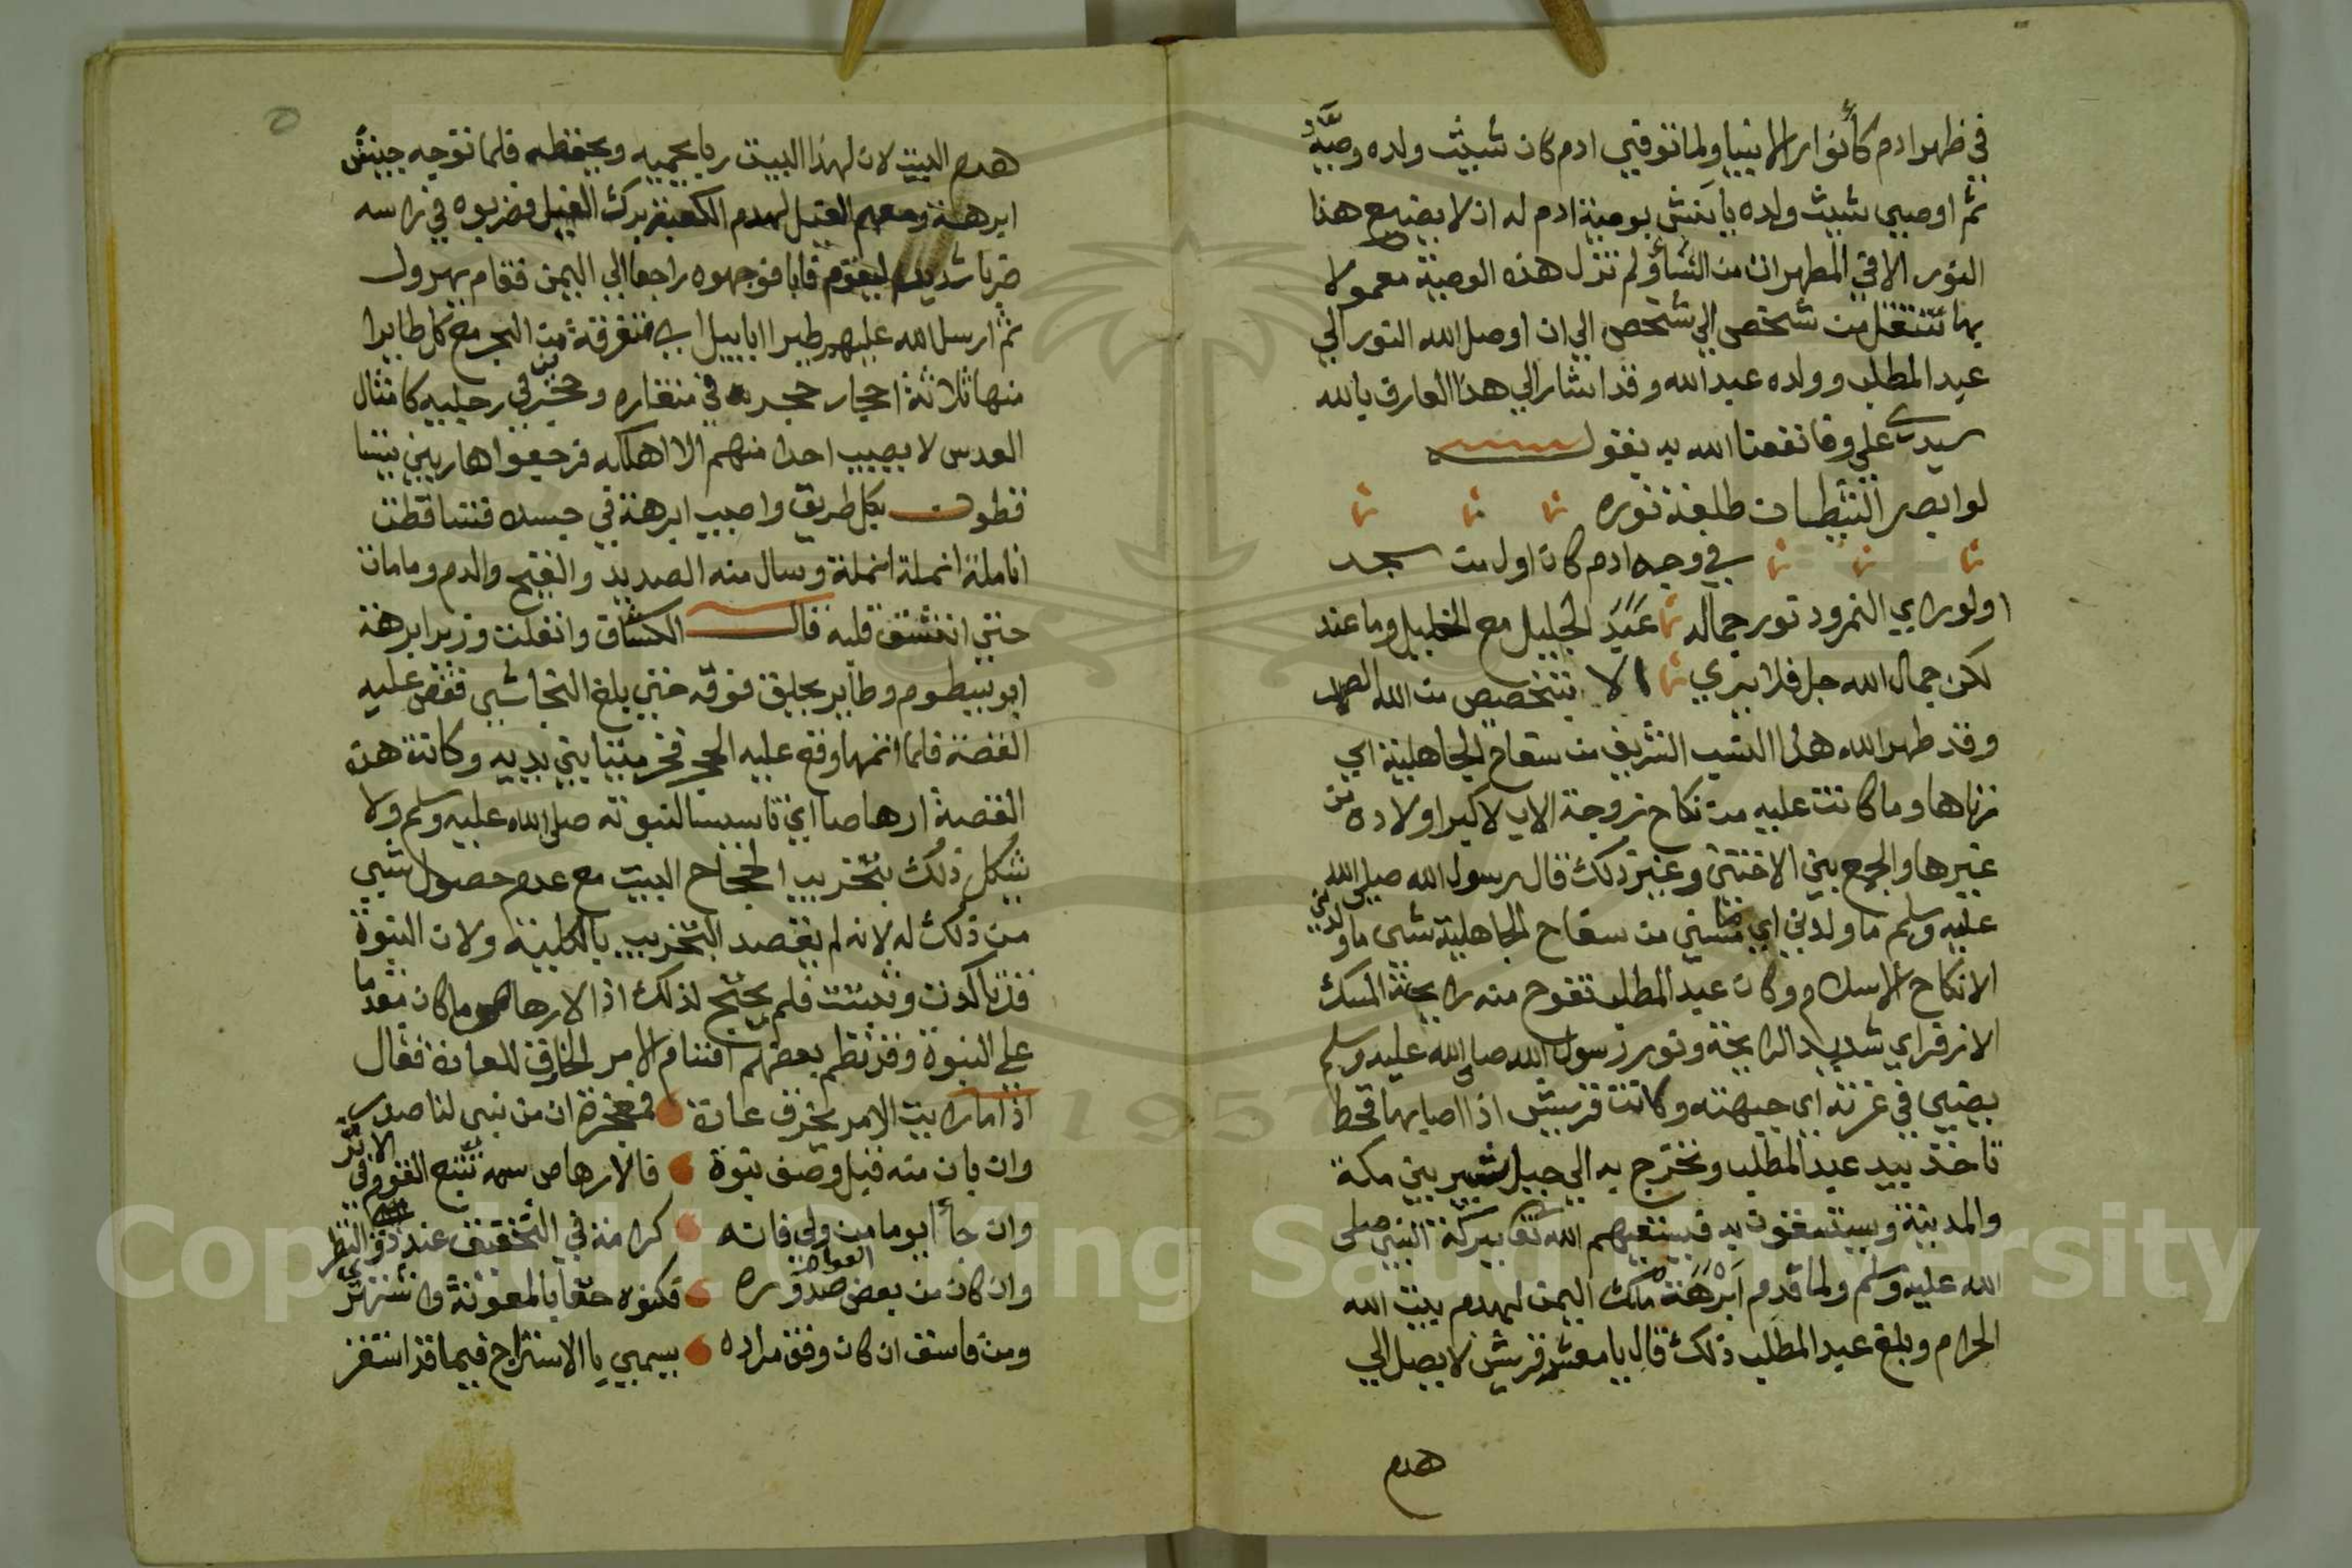 في ظهر ادم كأنوار الانبيا ولما توفي ادم كان شيث ولده وصيَّه
ثم اوصي شيث ولده يانش بوصية ادم له ان لا يضع هذا
النور الا في المطهرات من النسأ ولم تزل هذه الوصية معمولا
بها تنتقل من شخص الي شخص الي ان اوصل الله النور الي
عبد المطلب وولده عبد الله وقد اشار الي هذا العارف بالله
سيدي علي وفا نفعنا الله به يقول
لو ابصر الشيطان طلعة نوره
في وجه ادم كان اول من سجد
او لو راي النمرود نور جماله عَبَدَ الجليل مع الخليل وما عند
لكن جمال الله جل فلا يري الا بتخصيص من الله الصمد
وقد طهر الله هذا النسب الشريف من سفاح الجاهلية اي
زناها وما كانت عليه من نكاح زوجة الاب لاكبر اولاده من
غيرها والجمع بين الاختين وغير ذلك قال رسول الله صلي الله
عليه وسلم ما ولدني اي مسني من سفاح الجاهلية شي ما ولدني
الا نكاح الاسلام وكان عبد المطلب تفوح منه رايحة المسك
الاذفر اي شديد الرايحة ونور رسول الله صلي الله عليه وسلم
يضيي في غرته اي جبهته وكانت قريش اذا اصابها قحط
تاخذ بيد عبد المطلب وتخرج به الي جبل ثبير بين مكة
والمدينة ويستسقون به فيسقيهم الله تعا ببركة النبي صلى
الله عليه وسلم ولما قدم اَبْرَهَة ملك اليمن لهدم بيت الله
الحرام وبلغ عبد المطلب ذلك قال يا معشر قريش لا يصل الي
هدم
هدم البيت لان لهذا البيت ربا يحميه ويحفظه فلما توجه جيش
ابرهة ومعهم الفيل لهدم الكعبة برك الفيل فضربوه في راسه
ضربا شديدا ليقوم فابا فوجهوه راجعا الي اليمن فقام يهرول
ثم ارسل الله عليهم طيرا ابابيل اي متفرقة من البحر مع كل طايرا
منها ثلاثة احجار حجر في منقاره وحجرين في رجليه كامثال
العدس لا يصيب احدا منهم الا اهلكه فرجعوا هاربين يتسا
قطون بكل طريق واصيب ابرهة في جسده فتساقطت
انامله انملة انملة وسال منه الصديد والقيح والدم وما مات
حتي انشق قلبه قال الكشاف وانفلت وزير ابرهة
ابو يبسطوم وطاير يحلق فوقه حتي بلغ النجاشي فقص عليه
القصة فلما اتمها وقع عليه الحجر فخر ميتا بين يديه وكانت هذه
القصة ارهاصا اي تاسيسا لنبوته صلى الله عليه وسلم ولا
يشكل ذلك بتخريب الحجاج البيت مع عدم حصول شي
من ذلك له لانه لم يقصد التخريب بالكلية ولان النبوة
قد تاكدت وثبتت فلم يحتج لذلك اذ الارهاص ما كان مقدما
علي النبوة وقد نظم بعضهم اقسام الامر الخارق للعادة فقال
اذا ما رايت الامر يخرق عادة فمعجزة ان من نبي لنا صدر
وان بان منه قبل وصف نبوة فالارهاص سمه تتبع القوم في الاثر
وان جأ يوما من ولي فانه كرامة في التحقيق عند ذوي النظر
وان كان من بعض العوام صدوره فكنوه حقا بالمعونة واشتهر
ومن فاسق ان كان وفق مراده يسمي يا الاستدراج فيما قد استقر